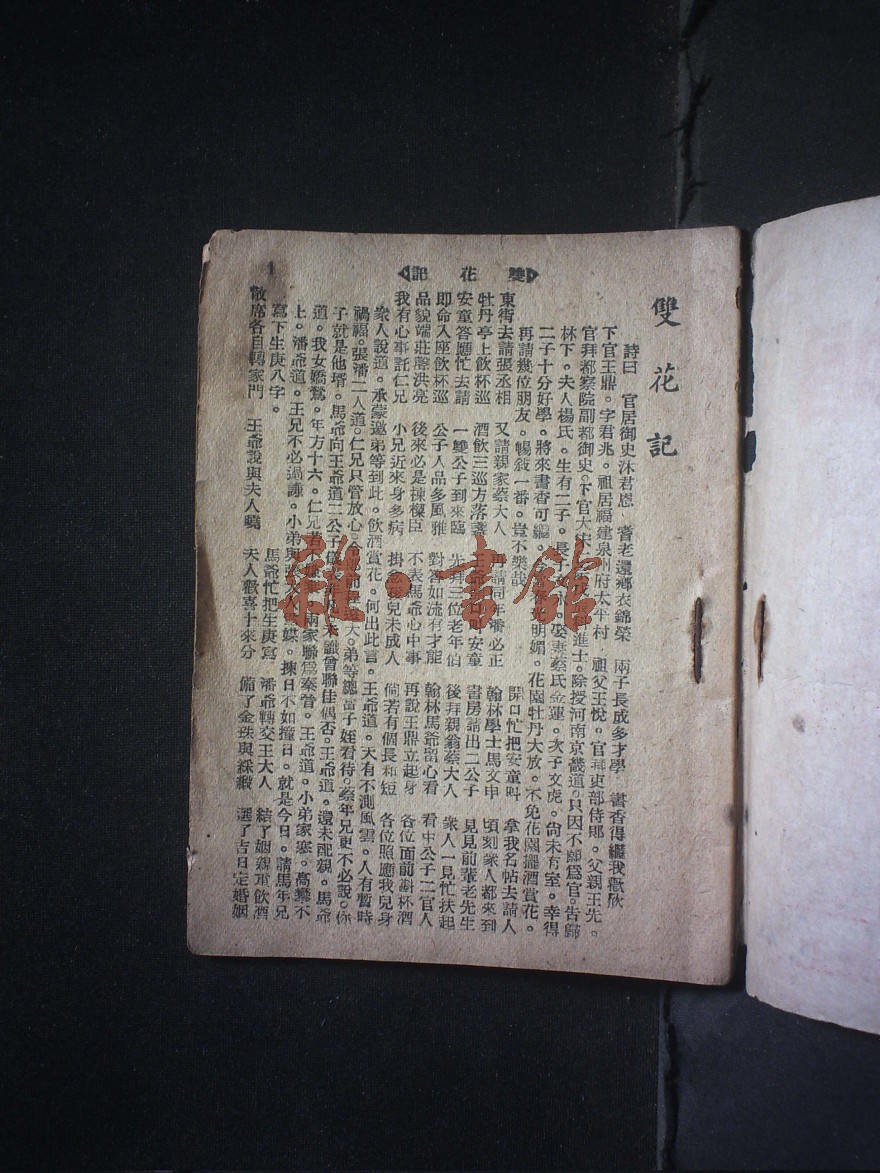 雙花記
雙花記
1
詩曰　官居御史沐君恩　耆老還鄉衣錦榮　兩子長成多才學　書香得繼我歡欣
下官王鼎。字君兆。祖居福建泉州府太平村　祖父王悅。官拜吏部侍郎。父親王先。
官拜都察院副都御史。下官大宋　進士。除授河南京畿道。只因不願爲官。告歸
林下。夫人楊氏。生有二子。長子　娶妻蔡氏金蓮。次子文虎。尙未有室。幸得
二子十分好學。將來書香可繼。　明媚。花園牡丹大放。不免花園擺酒賞花。
再請幾位朋友。暢敍一番。豈不樂哉
東街去請張丞相　又請親家蔡大人　再請同年潘必正　開口忙把安童叫　拿我名帖去請人
牡丹亭上飲杯巡　酒飲三巡方落臺　王爺　叫安童　翰林學士馬文申　頃刻衆人都來到
安童答應忙去請　一雙公子到來臨　先拜三位老年伯　書房請出二公子　見見前輩老先生
即命入座飲杯巡　公子人品多風雅　對答如流有才能　後拜親翁蔡大人　衆人一見忙扶起
品貌端莊聲洪亮　後來必是棟樑臣　不表馬爺心中事　翰林馬爺留心看　看中公子二官人
我有心事託仁兄　小兄近來身多病　掛念後兒未成人　再說王鼎立起身　各位面前斟杯酒
衆人說道。承蒙邀弟等到此。飲酒賞花。何出此言。王爺道。天有不測風雲。人有暫時　倘若有個長和短　各位照應我兒身
禍福。張潘二人道。仁兄只管放心。令郎前程遠大。弟等總當子姪看待。蔡年兄更不必說。你
子就是他壻。馬爺向王爺道二公子　未識曾聯佳偶否。王爺道。還未配親。馬爺
道。我女嬌鸞。年方十六。仁兄若不嫌　兩家聯爲秦晉。王爺道。小弟家寒。高攀不
上。潘爺道。王兄不必過謙。小弟與張　媒。揀日不如撞日。就是今日。請馬年兄
寫下生庚八字。
馬爺忙把生庚寫　潘爺轉交王大人　結了姻親重飲酒
散席各自轉家門　王爺說與夫人曉　夫人歡喜十來分　備了金珠與綵緞　選了吉日定婚姻
雅·書館